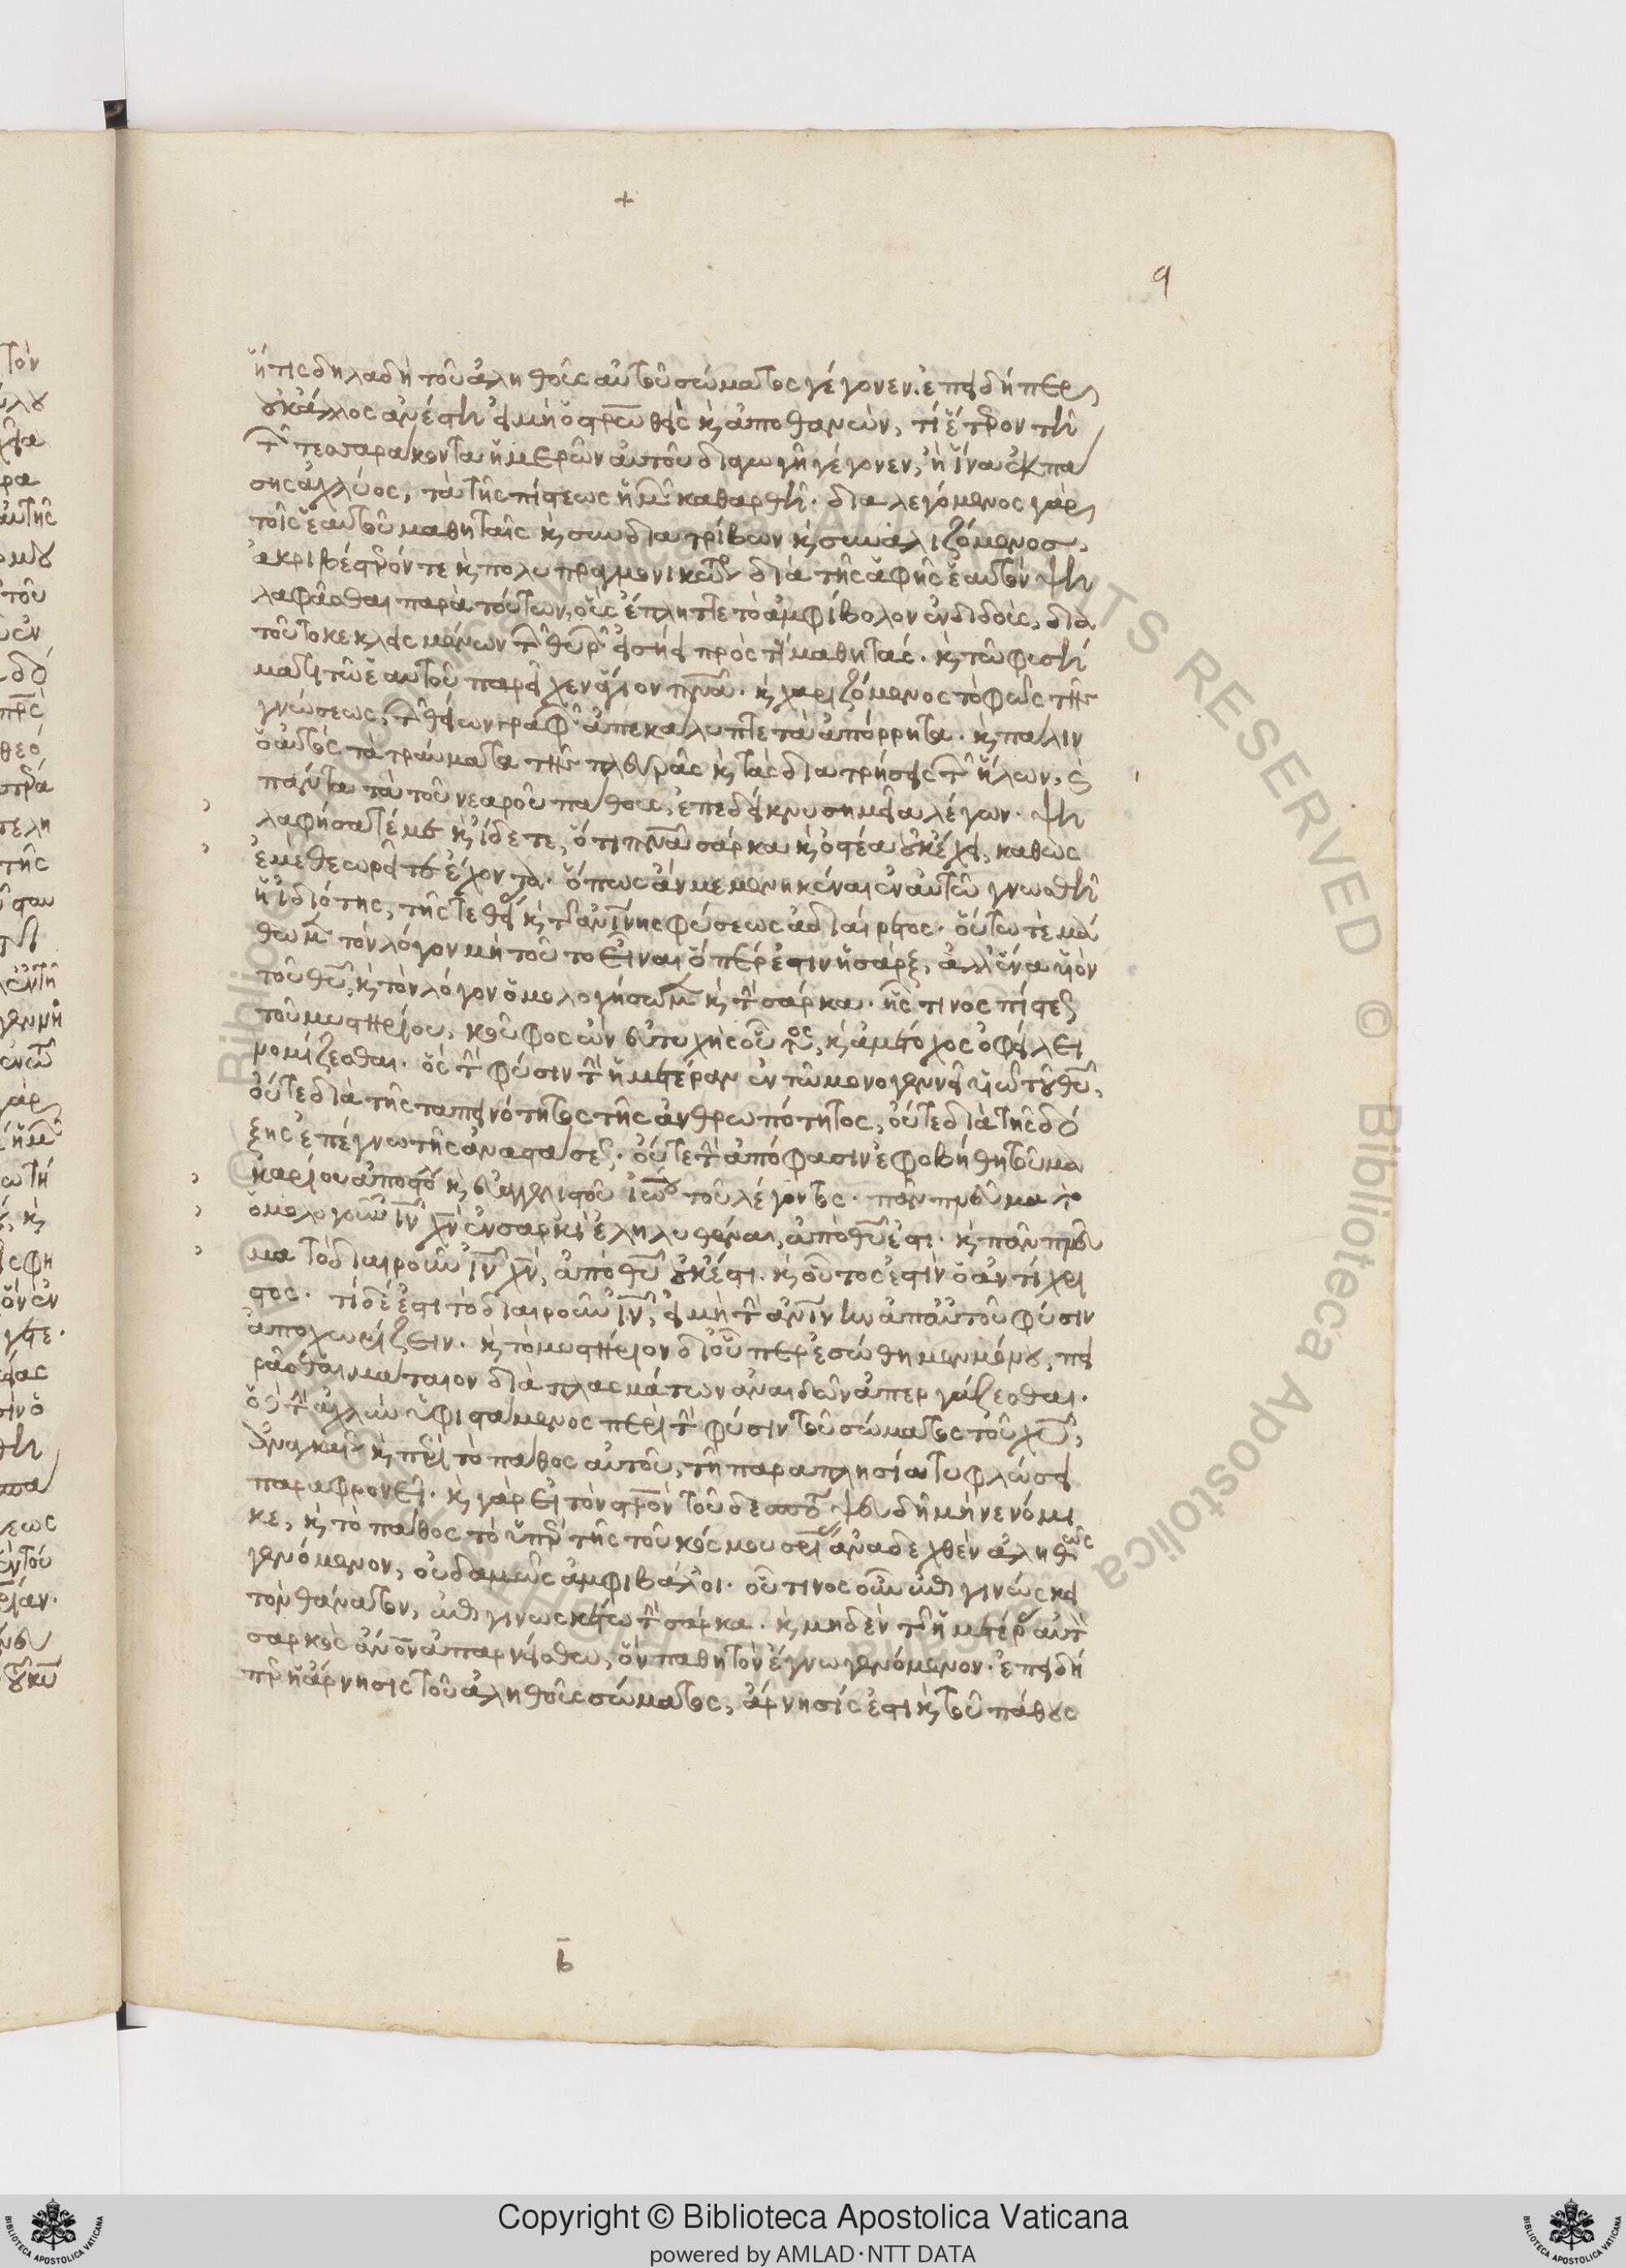 +
9
ἥτις δηλαδὴ τοῦ ἀληθοῦς αὐτοῦ σώματος γέγονεν. ἐπειδήπερ
οὐκ ἄλλος ἀνέστη εἰ μὴ ὁ στρωθεὶς κ ἀποθανών, τί ἕτερον τῆ
τῶν τεσσαράκοντα ἡμερῶν αὐτοῦ διαγωγῆ γέγονεν, ἢ ἵνα ἐκ πά
σης ἀχλύος, τὰ τῆς πίστεως ἡμῶν καθαρθῆ. διαλεγόμενος γὰρ
τοῖς ἑαυτοῦ μαθηταῖς κ συνδιατρίβων κ συναλιζόμενος,
ἀκριβέστερόν τε κ πολυπραγμονικῶς διὰ τῆς ἁφῆς ἑαυτὸν ψη
λαφᾶσθαι παρὰ τούτων, οὓς ἔπληττε τὸ ἀμφίβολον ἐνδιδούς, διὰ
τοῦτο κεκλεισμένων τῶν θυρῶν εἰσῄει πρὸς τοὺς μαθητάς. κ τῶ φυσή
ματι τῶ ἑαυτοῦ παρεῖχεν ἅγιον πνα. κ χαριζόμενος τὸ φῶς τῆς
γνώσεως, τῶν θείων γραφῶν ἀπεκάλυπτε τὰ ἀπόρρητα. κ πάλιν
ὁ αὐτὸς τὰ τραύματα τῆς πλευρᾶς κ τὰς διατρήσεις τῶν ἥλων, κ
πάντα τὰ τοῦ νεαροῦ πάθους, ἐπεδείκνυ σημεῖα λέγων. ψη
λαφήσατέ με κ ἴδετε, ὅτι πνα σάρκα κ ὀστέα οὐκ ἔχει, καθὼς
ἐμὲ θεωρεῖτε ἔχοντα. ὅπως ἂν μεμενηκέναι ἐν αὐτῶ γνωσθῆ
ἡ ἰδιότης, τῆς τε θείας κ τῆς ἀνίνης φύσεως ἀδιαίρετος. οὕτω τε μά
θωμεν τὸν λόγον μὴ τοῦτο εἶναι ὅπερ ἐστὶν ἡ σάρξ, ἀλλ' ἕνα υἱὸν
τοῦ θυ, κ τὸν λόγον ὁμολογήσωμεν κ τὴν σάρκα. ἧς τινος πίστεως
τοῦ μυστηρίου, κοῦφος ὢν εὐτυχὴς οὗτος, κ ἀμέτοχος ὀφείλει
νομίζεσθαι. ὃς τὴν φύσιν τὴν ἡμετέραν ἐν τῶ μονογενεῖ υἱῶ τοῦ θυ,
οὔτε διὰ τῆς ταπεινότητος τῆς ἀνθρωπότητος, οὔτε διὰ τῆς δό
ξης ἐπέγνω τῆς ἀναστάσεως. οὔτε τὴν ἀπόφασιν ἐφοβήθη τοῦ μα
καρίου ἀποστόλου κ εὐαγγελιστοῦ ἰωάννου τοῦ λέγοντος. πᾶν πνεῦμα τὸ
ὁμολογοῦν ιν χν ἐν σαρκὶ ἐληλυθέναι, ἀπὸ θυ ἐστι. κ πᾶν πνεῦ
μα τὸ διαιροῦν ιν χν, ἀπὸ θυ οὐκ ἔστι. κ οὗτός ἐστιν ὁ ἀντίχρι
στος. τί δέ ἐστι τὸ διαιροῦν ιν, εἰ μὴ τὴν ἀνίνην ἀπ' αὐτοῦ φύσιν
ἀποχωρίζειν. κ τὸ μυστήριον δι' οὗπερ ἐσώθημεν μόνου, πει
ρᾶσθαι μάταιον διὰ πλασμάτων ἀναιδῶν ἀπεργάζεσθαι.
ὁ γὰρ τὴν ἀχλὺν ὑφιστάμενος περὶ τὴν φύσιν τοῦ σώματος τοῦ χυ,
ἀναγκαίως κ περὶ τὸ πάθος αὐτοῦ, τῆ παραπλησία τυφλώσει
παραφρονεῖ. κ γὰρ εἰ τὸν στρον τοῦ δεσπότου ψευδῆ μὴ νενόμι
κε, κ τὸ πάθος τὸ ὑπὲρ τῆς τοῦ κόσμου σρίας ἀναδεχθὲν ἀληθῶς
γενόμενον, οὐδαμῶς ἀμφιβάλλοι. οὗτινος οὖν ἐπιγινώσκει
τὸν θάνατον, ἐπιγινωσκέτω τὴν σάρκα. κ μηδὲν τῆς ἡμετέρας αὐτὸν
σαρκὸς ἀνον ἀπαρνείσθω, ὃν παθητὸν ἔγνω γενόμενον. ἐπειδή
περ ἡ ἄρνησις τοῦ ἀληθοῦς σώματος, ἄρνησίς ἐστι κ τοῦ πάθους
b
Copyright © Biblioteca Apostolica Vaticana
powered by AMLAD·NTT DATA